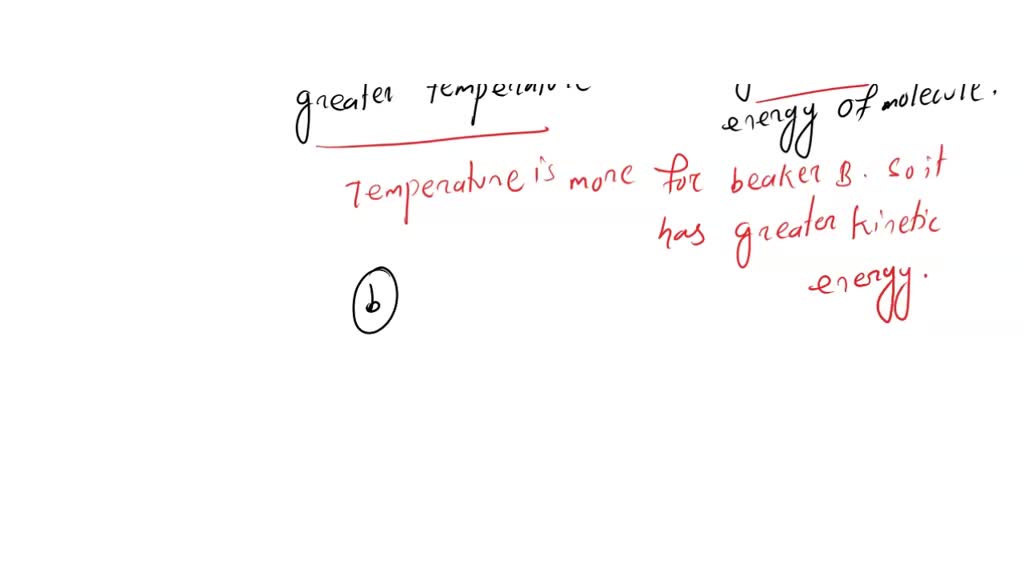 greater temperature
energy of molecule.
Temperature is more for beaker B. So it
has greater kinetic
energy.
b